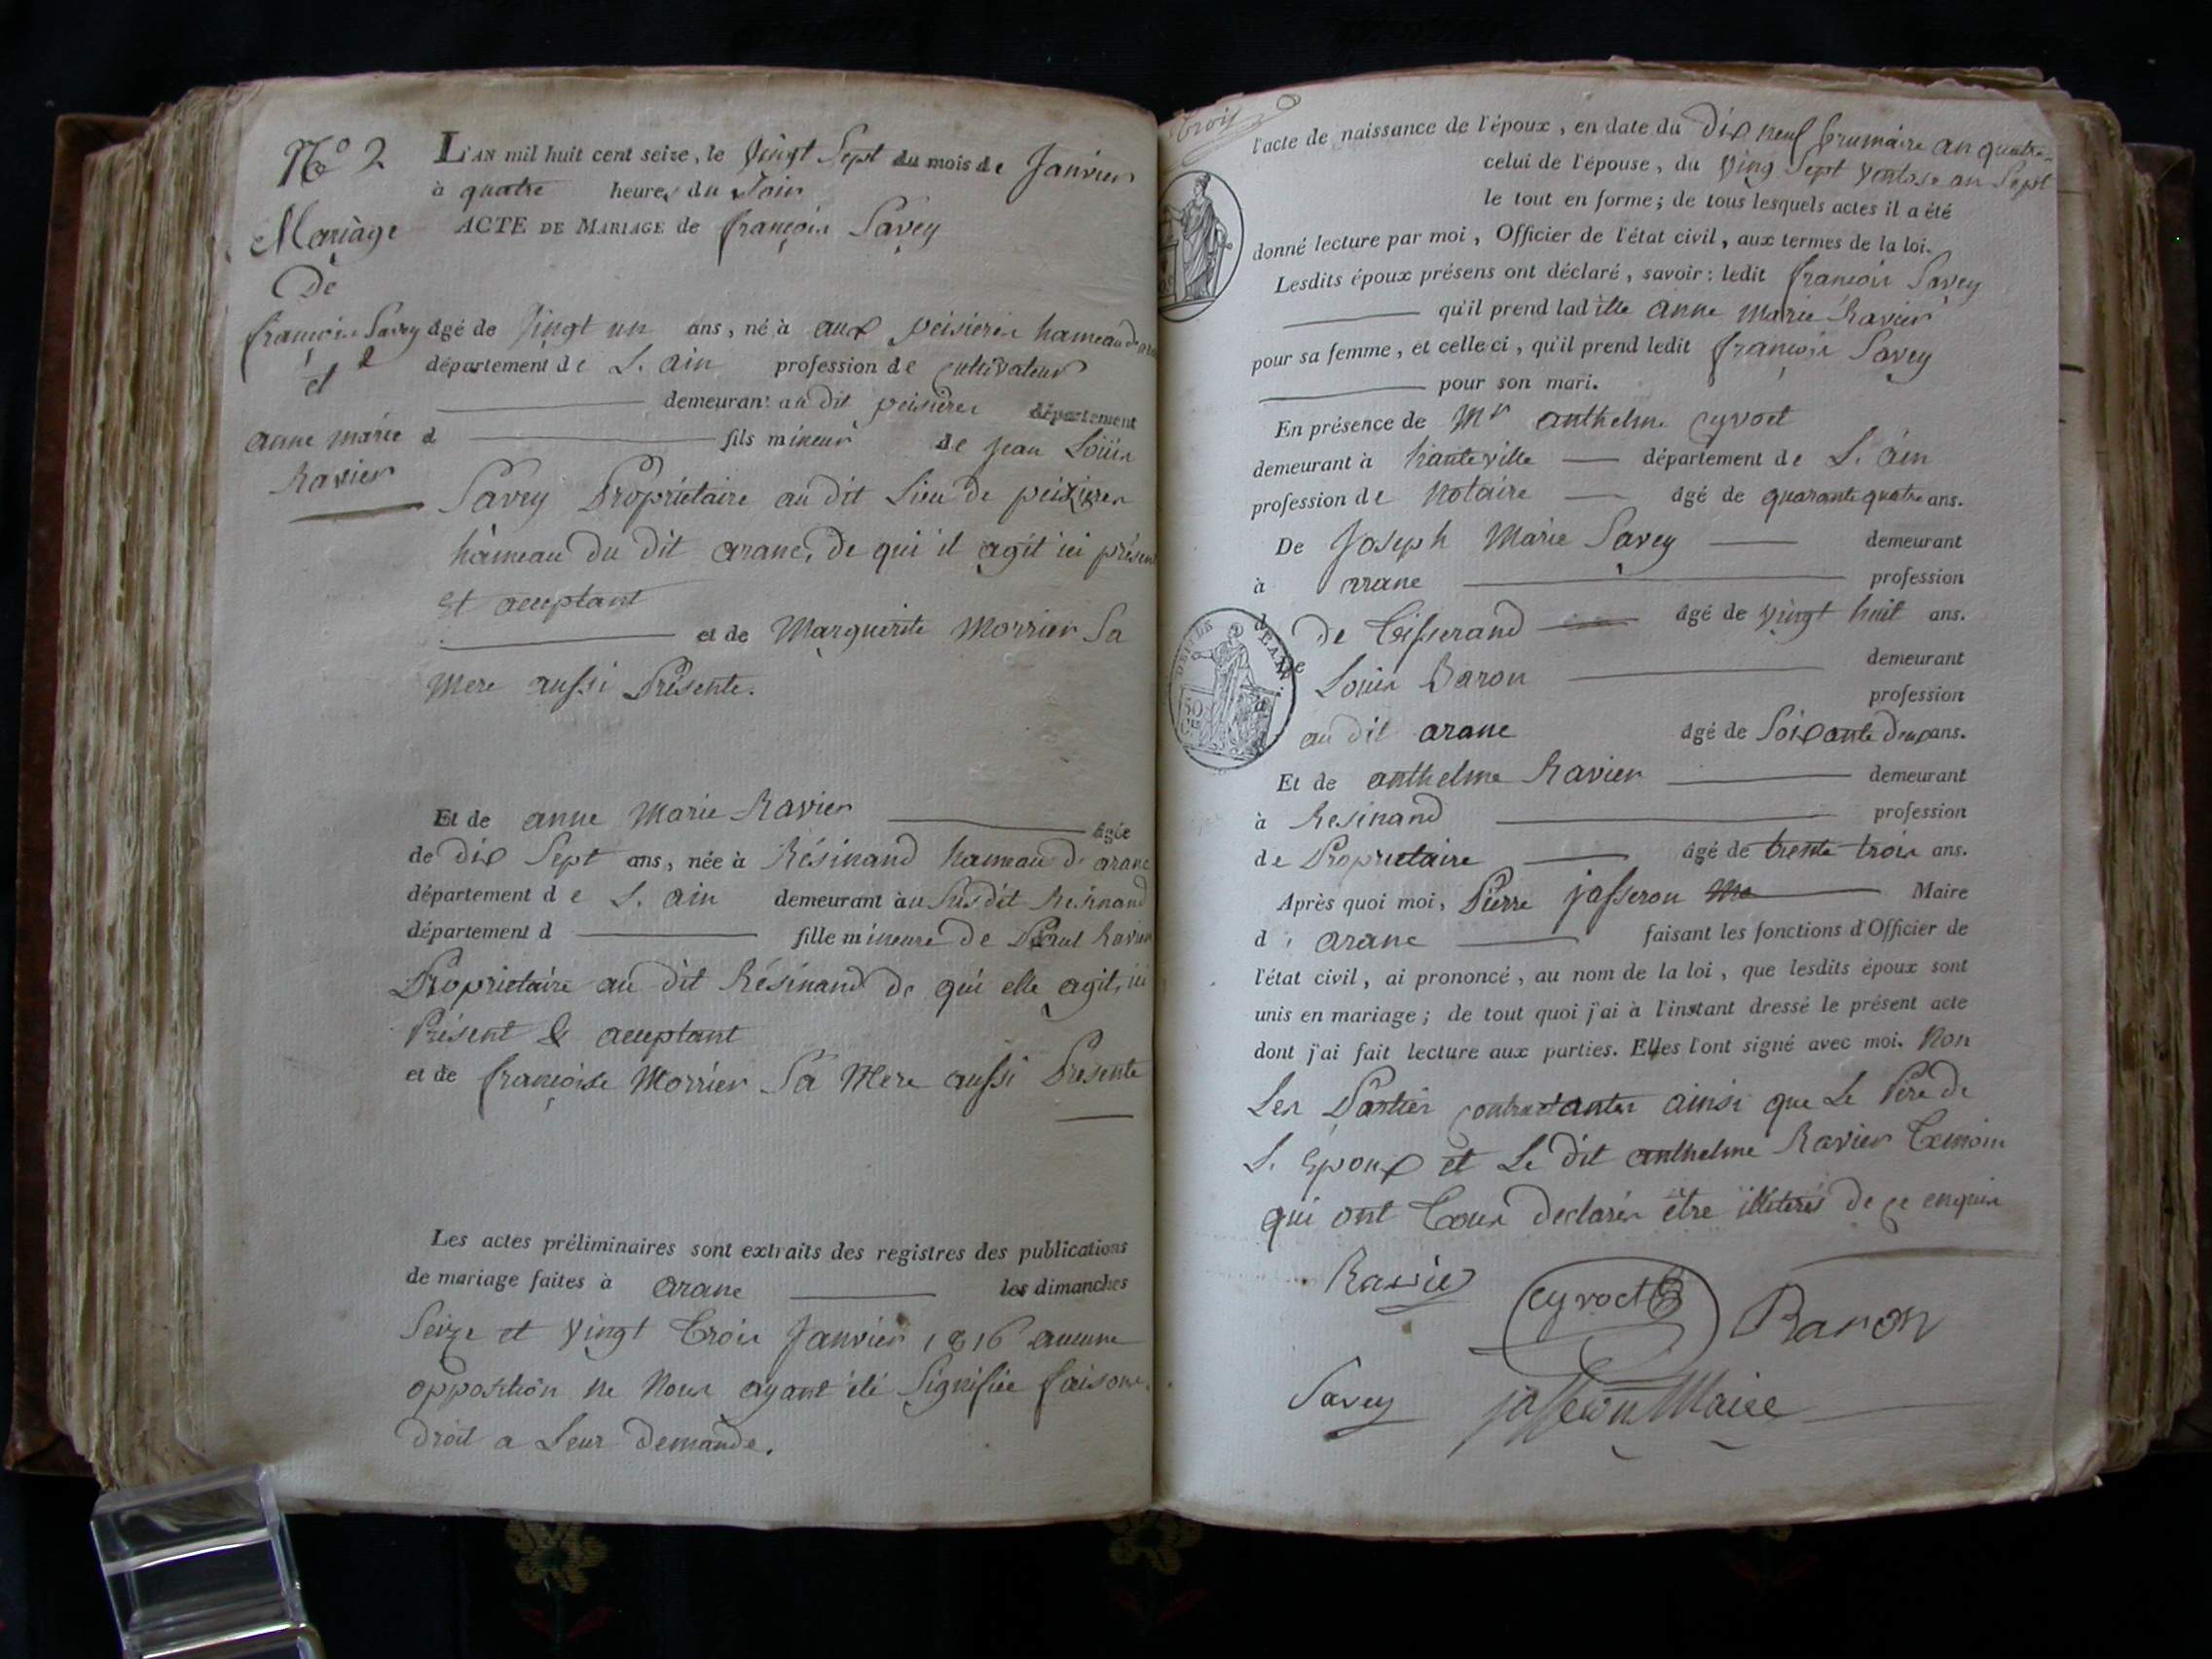 N.o 2
Mariage
De
françois Savey
et
anne marie
Ravier
L'AN mil huit cent seize, le vingt Sept du mois de Janvier
à quatre heures du Soir
ACTE DE MARIAGE de françois Savey
âgé de vingt un ans, né à aux peisieres hameau d'arane
département de L'ain profession de cultivateur
demeurant au dit peisieres département
d fils mineur de jean Loüis
Savey Proprietaire au dit Lieu de peizieres
hameau du dit arane, de qui il agit ici présent
et acceptant
et de Marguerite Morrier Sa
Mere aussi Présente.
Et de anne Marie Ravier âgée
de dix Sept ans, née à Résinand hameau d'arane
département de L'ain demeurant au susdit Resinand
département d fille mineure de Paul Ravier
Proprietaire au dit Résinand de qui elle agit, ici
Présent & acceptant
et de françoise Morrier Sa Mere aussi Presente
Les actes préliminaires sont extraits des registres des publications
de mariage faites à arane les dimanches
Seize et vingt trois Janvier 1816 aucune
opposition ne Nous ayant été Signifiée faisons
droit a Leur demande.
trois
l'acte de naissance de l'époux, en date du dix neuf brumaire an quatre
celui de l'épouse, du ving Sept ventose an Sept
le tout en forme; de tous lesquels actes il a été
donné lecture par moi, Officier de l'état civil, aux termes de la loi.
Lesdits époux présens ont déclaré, savoir: ledit françois Savey
qu'il prend ladille anne marie Ravier
pour sa femme, et celle ci, qu'il prend ledit françois Savey
pour son mari.
En présence de Mr anthelme cyvoct
demeurant à hauteville département de L'ain
profession de Notaire âgé de quarante quatre ans.
De Joseph Marie Savey demeurant
à arane profession
d de tisserand âgé de vingt huit ans.
De Louis Baron demeurant
profession
au dit arane âgé de Soixante deux ans.
Et de anthelme Ravier demeurant
à Resinand profession
de Proprietaire âgé de trente trois ans.
Après quoi moi, Pierre jasseron Maire
d'arane faisant les fonctions d'Officier de
l'état civil, ai prononcé, au nom de la loi, que lesdits époux sont
unis en mariage; de tout quoi j'ai à l'instant dressé le présent acte
dont j'ai fait lecture aux parties. Elles l'ont signé avec moi. Non
Les Parties contractantes ainsi que Le Pere de
L'Epoux et Le dit anthelme Ravier temoin
qui ont tous declarés être illiterés de ce enquis
Ravier
cyvoct
Baron
Savey
jasseron Maire